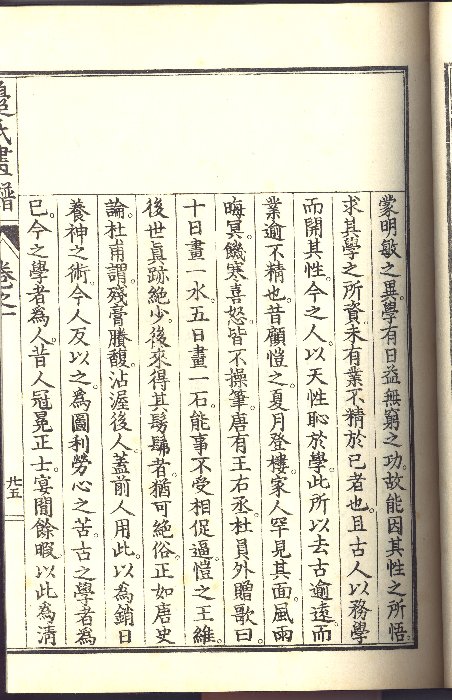 蒙明敏之異。學有日益無窮之功。故能因其性之所悟。
求其學之所資。未有業不精於己者也。且古人以務學
而開其性。今之人以天性恥於學。此所以去古逾遠。而
業逾不精也。昔顧愷之夏月登樓。家人罕見其面。風雨
晦冥。饑寒喜怒。皆不操筆。唐有王右丞。杜員外贈歌曰
十日畫一水。五日畫一石。能事不受相促逼。愷之王維。
後世真跡絕少。後來得其髣髴者。猶可絕俗。正如唐史
論。杜甫謂。殘膏賸馥。沾渥後人。蓋前人用此。以為銷日
養神之術。今人反以之為圖利勞心之苦。古之學者為
已。今之學者為人。昔人冠冕正士。宴閒餘暇。以此為清
畫譜
卷之一
廿五